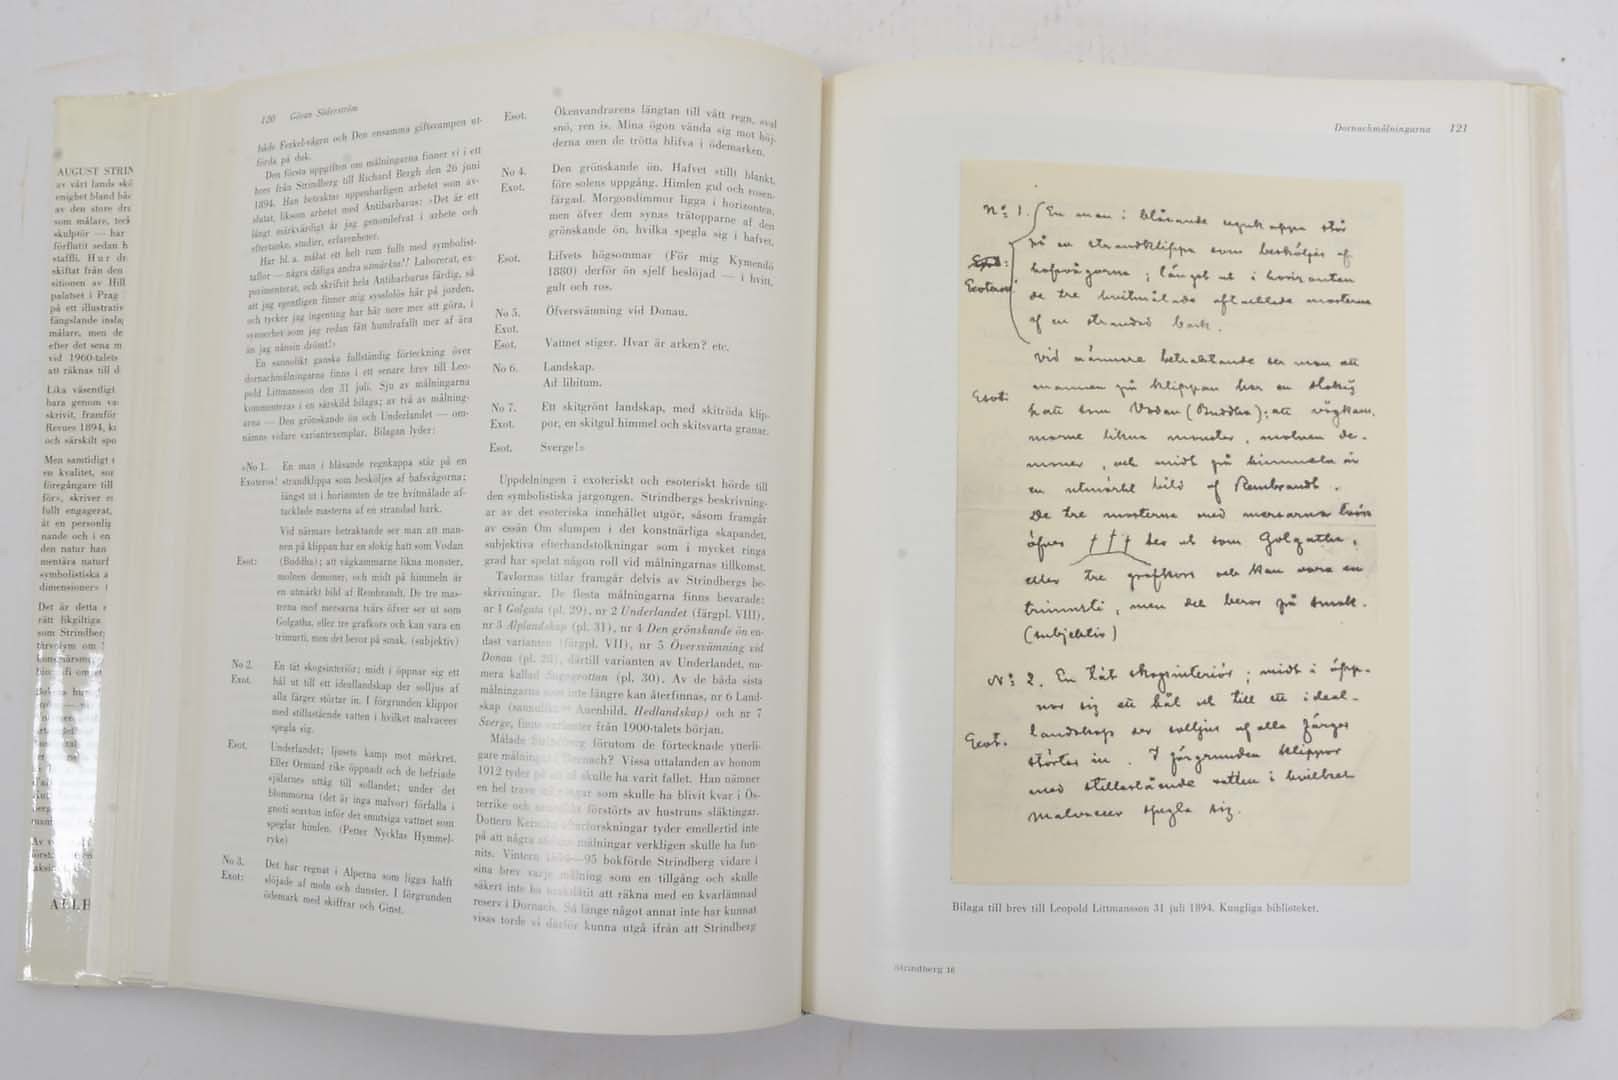 AUGUST STRIN
av vårt lands skö
enighet bland bäc
av den store dra
som målare, teck
skulptör — har
förflutit sedan h
staffli. Hur dr
skiftat från den
sitionen av Hill
palatset i Prag
på ett illustrativ
fängslande inslag
målare, men de
efter det sena m
vid 1960-talets
att räknas till d
Lika väsentligt
bara genom va
skrivit, framför
Revues 1894, ki
och särskilt spo
Men samtidigt s
en kvalitet, som
föregångare till
för», skriver en
fullt engagerat,
åt en personlig
nande och i en
den natur han
mentära naturf
symbolistiska a
dimensioner» (
Det är detta s
rätt likgiltiga
som Strindberg
ALLH
120 Göran Söderström
både Ferkel-vägen och Den ensamma giftsvampen ut-
förda på duk.
Den första uppgiften om målningarna finner vi i ett
brev från Strindberg till Richard Bergh den 26 juni
1894. Han betraktar uppenbarligen arbetet som av-
slutat, liksom arbetet med Antibarbarus: »Det är ett
långt märkvärdigt år jag genomlefvat i arbete och
eftertanke, studier, erfarenheter.
Har bl. a. målat ett helt rum fullt med symbolist-
taflor — några dåliga andra utmärkta!! Laborerat, ex-
perimenterat, och skrifvit hela Antibarbarus färdig, så
att jag egentligen finner mig sysslolös här på jorden,
och tycker jag ingenting har här nere mer att göra, i
synnerhet som jag redan fått hundrafallt mer af ära
än jag nånsin drömt!»
En sannolikt ganska fullständig förteckning över
dornachmålningarna finns i ett senare brev till Leo-
pold Littmansson den 31 juli. Sju av målningarna
kommenteras i en särskild bilaga; av två av målning-
arna — Den grönskande ön och Underlandet — om-
nämns vidare variantexemplar. Bilagan lyder:
»No 1. En man i blåsande regnkappa står på en
Exoteros! strandklippa som besköljes af hafsvågorna;
längst ut i horisonten de tre hvitmålade af-
tacklade masterna af en strandad bark.
Vid närmare betraktande ser man att man-
nen på klippan har en slokig hatt som Vodan
Esot: (Buddha); att vågkammarne likna monster,
molnen demoner, och midt på himmeln är
en utmärkt bild af Rembrandt. De tre mas-
terna med mersarna tvärs öfver ser ut som
Golgatha, eller tre grafkors och kan vara en
trimurti, men det beror på smak. (subjektiv)
No 2. En tät skogsinteriör; midt i öppnar sig ett
Exot. hål ut till ett ideallandskap der solljus af
alla färger störtar in. I förgrunden klippor
med stillastående vatten i hvilket malvaceer
spegla sig.
Esot. Underlandet; ljusets kamp mot mörkret.
Eller Ormuzd rike öppnadt och de befriade
själarnes uttåg till sollandet; under det
blommorna (det är inga malvor) förfalla i
gnoti seavton inför det smutsiga vattnet som
speglar himlen. (Petter Nycklas Hymmel-
ryke)
No 3. Det har regnat i Alperna som ligga halft
Exot: slöjade af moln och dunster. I förgrunden
ödemark med skiffrar och Ginst.
Esot. Ökenvandrarens längtan till vått regn, sval
snö, ren is. Mina ögon vända sig mot höj-
derna men de trötta blifva i ödemarken.
No 4. Den grönskande ön. Hafvet stillt blankt,
Exot. före solens uppgång. Himlen gul och rosen-
färgad. Morgondimmor ligga i horizonten,
men öfver dem synas trätopparne af den
grönskande ön, hvilka spegla sig i hafvet.
Esot. Lifvets högsommar (För mig Kymendö
1880) derför ön sjelf beslöjad — i hvitt,
gult och ros.
No 5. Öfversvämning vid Donau.
Exot.
Esot. Vattnet stiger. Hvar är arken? etc.
No 6. Landskap.
Ad libitum.
No 7. Ett skitgrönt landskap, med skitröda klip-
Exot. por, en skitgul himmel och skitsvarta granar.
Esot. Sverge!»
Uppdelningen i exoteriskt och esoteriskt hörde till
den symbolistiska jargongen. Strindbergs beskrivning-
ar av det esoteriska innehållet utgör, såsom framgår
av essän Om slumpen i det konstnärliga skapandet,
subjektiva efterhandstolkningar som i mycket ringa
grad har spelat någon roll vid målningarnas tillkomst.
Tavlornas titlar framgår delvis av Strindbergs be-
skrivningar. De flesta målningarna finns bevarade:
nr 1 Golgata (pl. 29), nr 2 Underlandet (färgpl. VIII),
nr 3 Alplandskap (pl. 31), nr 4 Den grönskande ön en-
dast varianten (färgpl. VII), nr 5 Översvämning vid
Donau (pl. 28), därtill varianten av Underlandet, nu-
mera kallad Sagogrottan (pl. 30). Av de båda sista
målningarna som inte längre kan återfinnas, nr 6 Land-
skap (sannolikt = Auenbild, Hedlandskap) och nr 7
Sverge, finns varianter från 1900-talets början.
Målade Strindberg förutom de förtecknade ytterli-
gare målningar i Dornach? Vissa uttalanden av honom
1912 tyder på att så skulle ha varit fallet. Han nämner
en hel trave målningar som skulle ha blivit kvar i Ös-
terrike och förstörts av hustruns släktingar.
Dottern Kerstins efterforskningar tyder emellertid inte
på att några sådana målningar verkligen skulle ha fun-
nits. Vintern 1894—95 bokförde Strindberg vidare i
sina brev varje målning som en tillgång och skulle
säkert inte ha underlåtit att räkna med en kvarlämnad
reserv i Dornach. Så länge något annat inte har kunnat
visas torde vi därför kunna utgå ifrån att Strindberg
Dornachmålningarna 121
Nº 1. En man i blåsande regnkappa står
på en strandklippa som besköljes af
hafsvågorna; längst ut i horizonten
Exoteros! de tre hvitmålade aftacklade masterna
af en strandad bark.
Vid närmare betraktande ser man att
mannen på klippan har en slokig
Esot: hatt som Vodan (Buddha); att vågkam-
marne likna monster, molnen de-
moner, och midt på himmeln är
en utmärkt bild af Rembrandt.
De tre masterna med mersarna tvärs
öfver ser ut som Golgatha,
eller tre grafkors och kan vara en
trimurti, men det beror på smak.
(subjektiv)
Nº 2. En tät skogsinteriör; midt i öpp-
nar sig ett hål ut till ett ideal-
Exot. landskap der solljus af alla färger
störtar in. I förgrunden klippor
med stillastående vatten i hvilket
malvaceer spegla sig.
Bilaga till brev till Leopold Littmansson 31 juli 1894. Kungliga biblioteket.
Strindberg 16